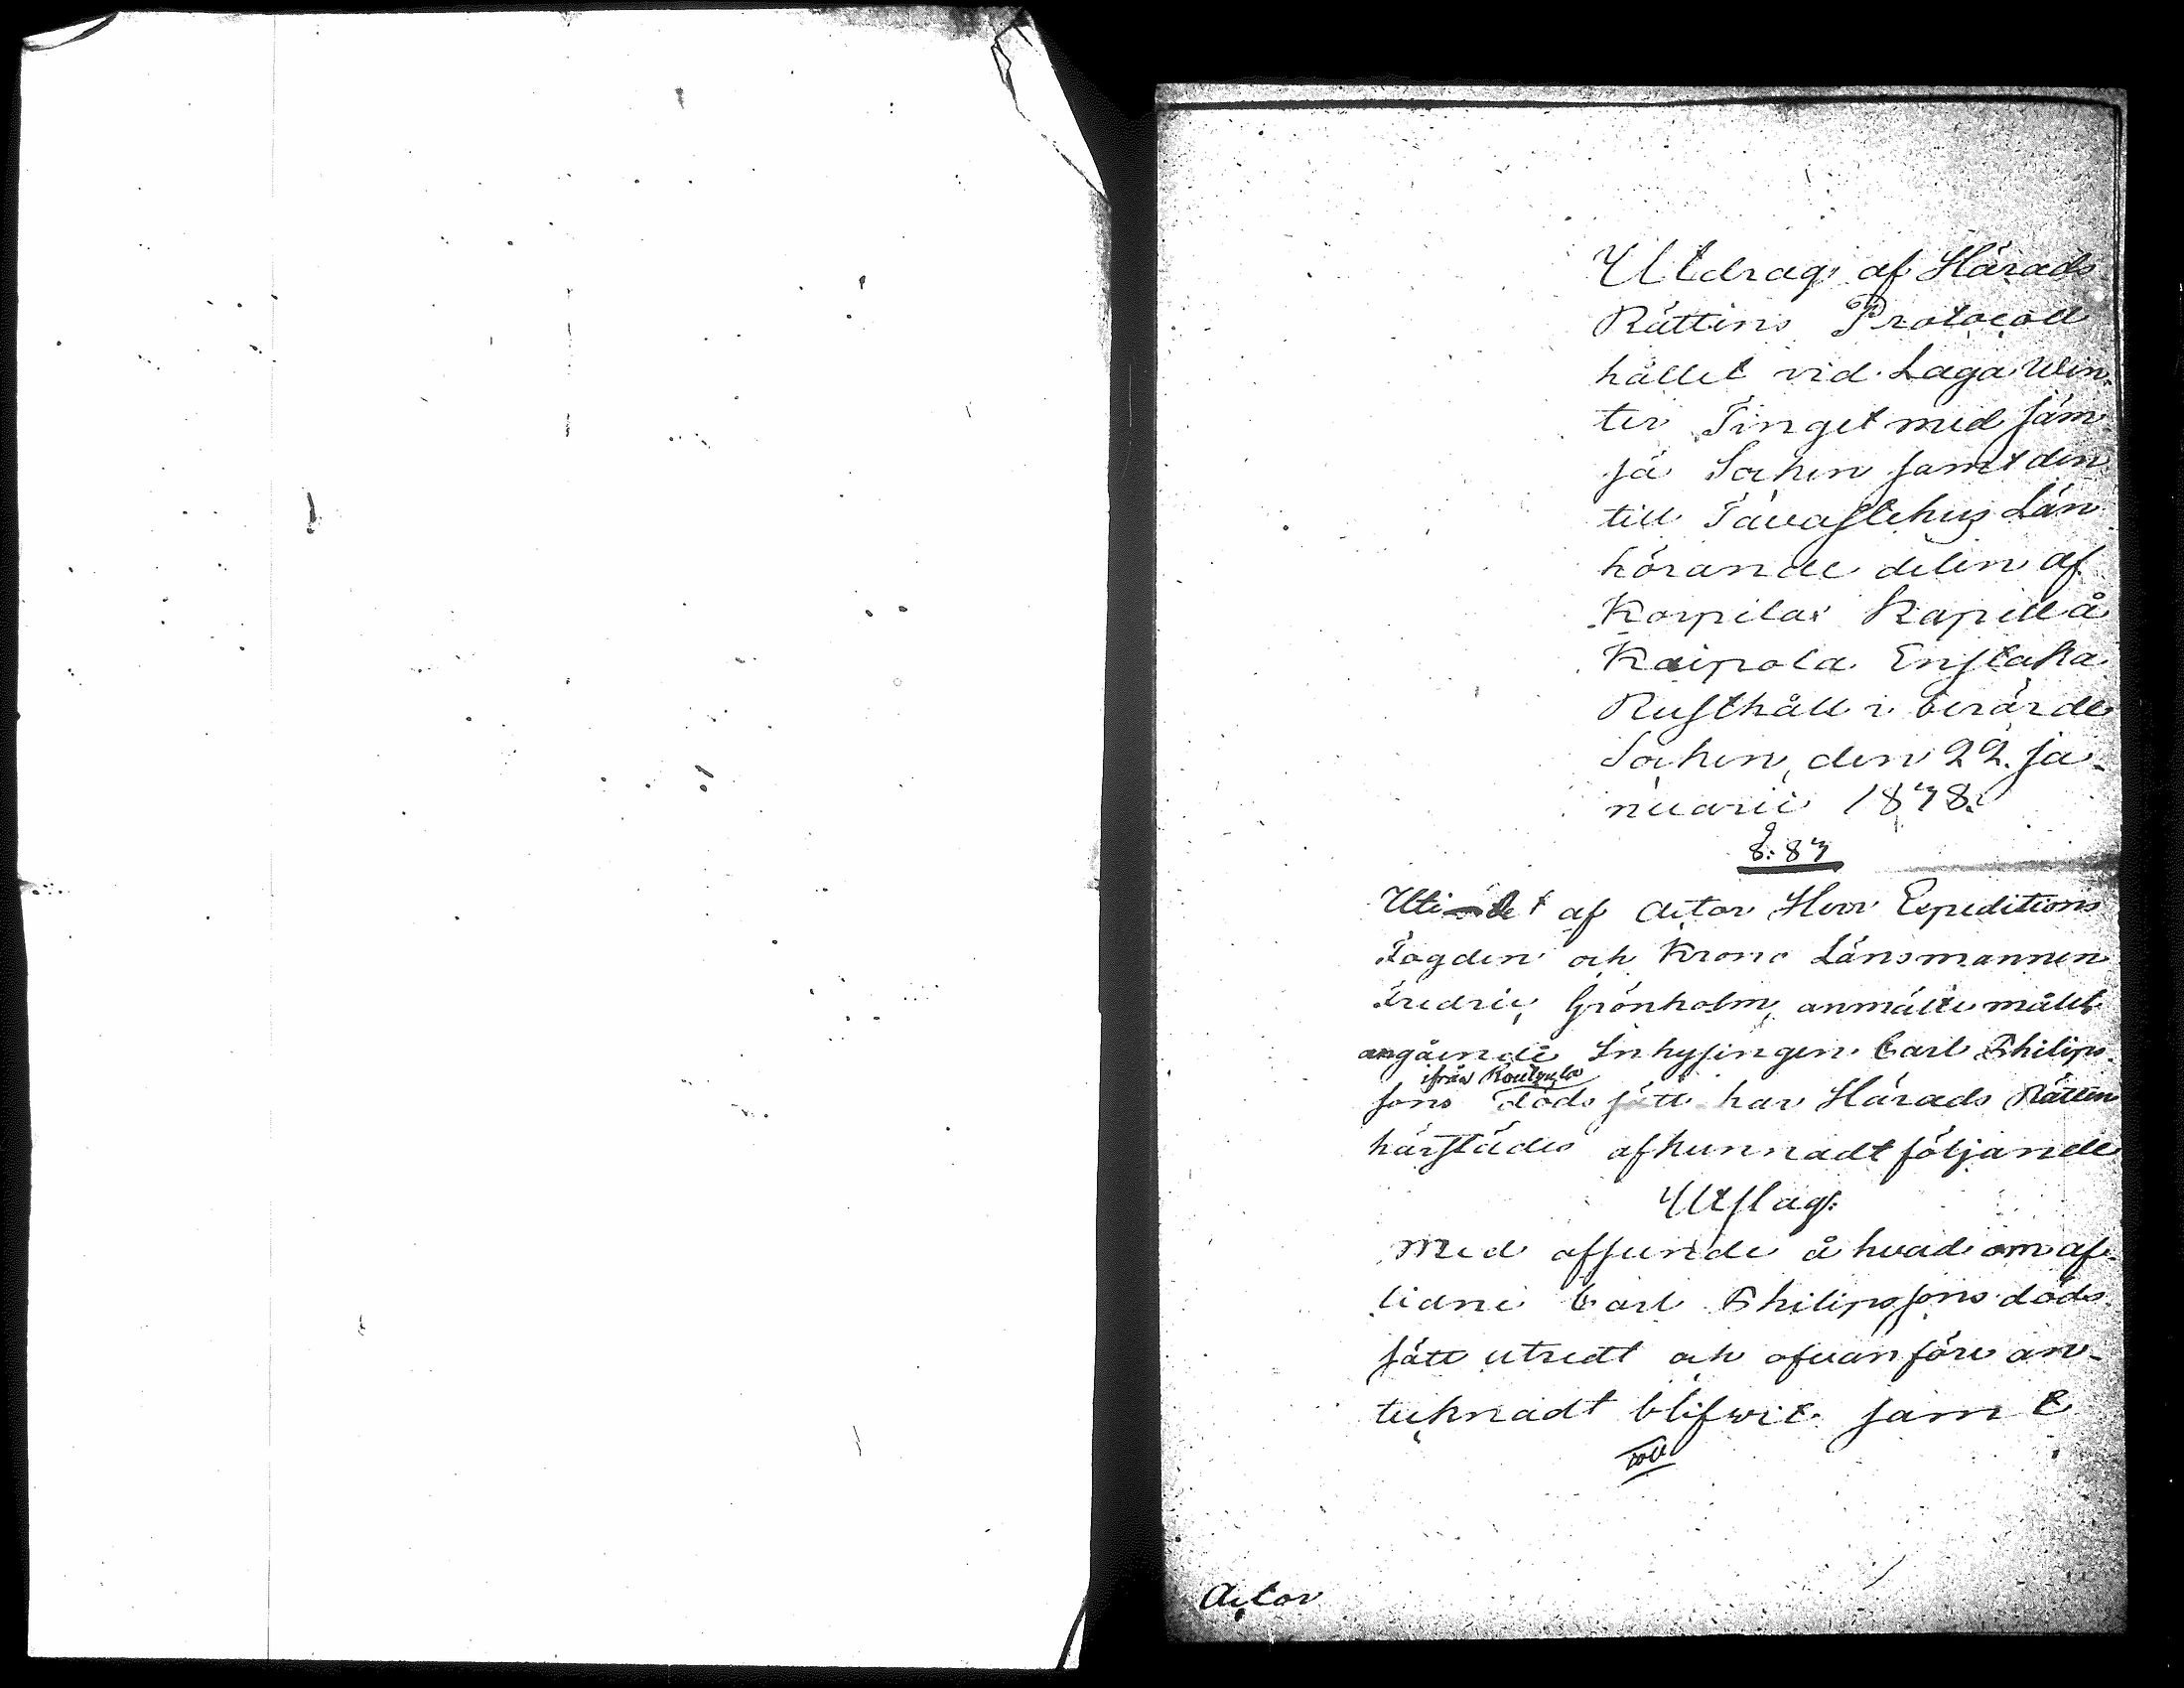 Utdrag af Härads
Rättens Protocoll
hållet vid Laga Win-
ter Tinget med Jäm-
sä Socken samt den
till Tavastehus Län
hörande delen af
Korpilax Kapell å
Kaipola Enstaka
Rusthåll i berörde
Socken, den 22 Ja-
nuarii 1848.
§. 87
Uti det af Actor Herr Expeditions
Fogden och Krono Länsmannen
Fredric Grönholm, anmälte målet
angående Inhysingen Carl Philips-
ifrån
sons döds sätt har Härads Rätten
härstädes afkunnadt följande
Utslag:
Med afseende å hvad om af-
lidne Carl Philipssons döds
sätt utredt och ofvanföre an-
tecknadt blifwit samt
Actor